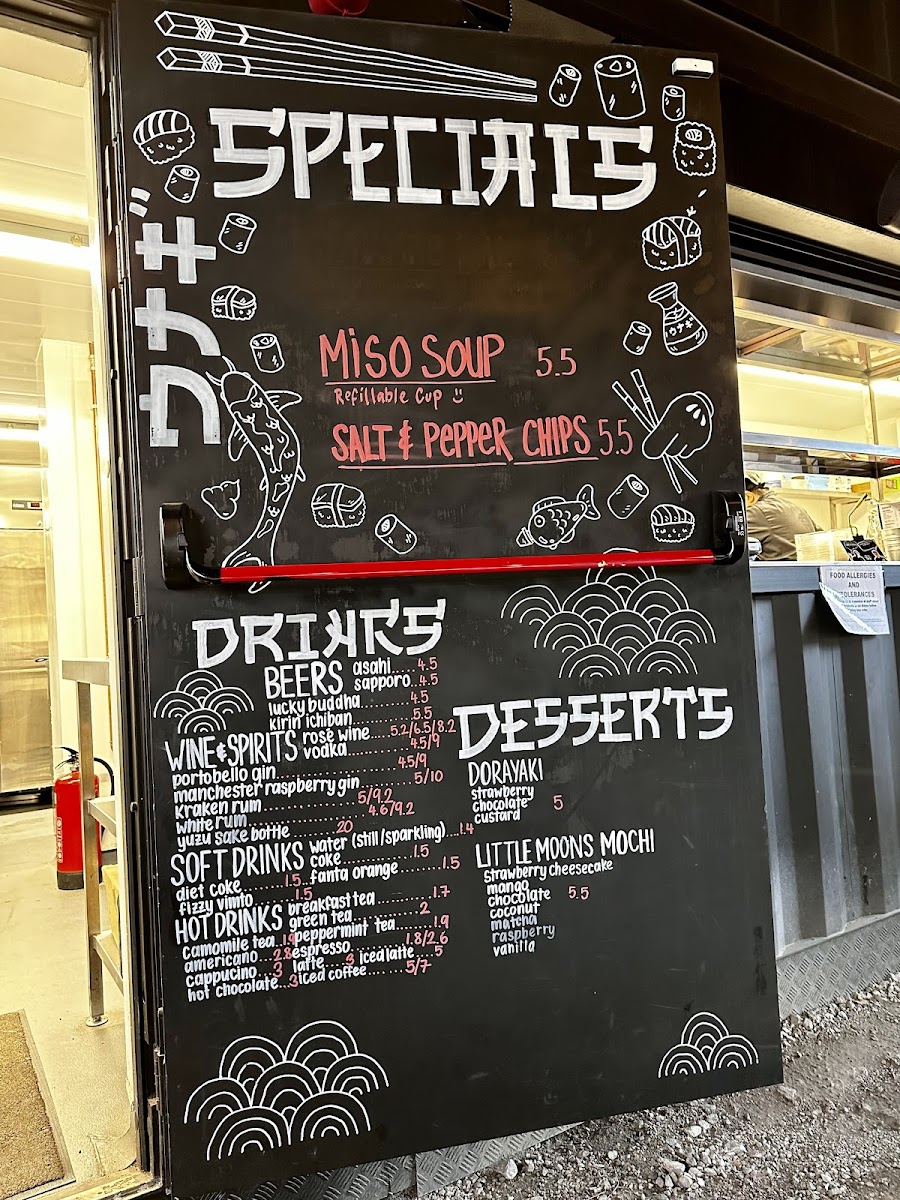 SPECIALS
ウナギ
MISO SOUP 5.5
Refillable Cup
SALT & PEPPER CHIPS 5.5
ウナギ
DRINKS
BEERS asahi.....4.5
sapporo..4.5
lucky buddha........4.5
kirin ichiban..........5.5
WINE & SPIRITS rosé wine....5.2/6.5/8.2
vodka............4.5/9
portobello gin......................4.5/9
manchester raspberry gin..........5/10
Kraken rum................5/9.2
white rum..................4.6/9.2
yuzu sake bottle.........20
SOFT DRINKS water (still/sparkling)...1.4
coke............1.5
diet coke........1.5..fanta orange........1.5
fizzy vimto........1.5
HOT DRINKS breakfast tea..........1.7
green tea............2
camomile tea.1.9 peppermint tea.....1.9
americano...2.8 espresso.........1.8/2.6
cappucino...3 latte....3 iced latte....5
hot chocolate...3 iced coffee.......5/7
DESSERTS
DORAYAKI
strawberry
chocolate 5
custard
LITTLE MOONS MOCHI
strawberry cheesecake
mango
chocolate 5.5
coconut
matcha
raspberry
vanilla
FOOD ALLERGIES
AND
INTOLERANCES